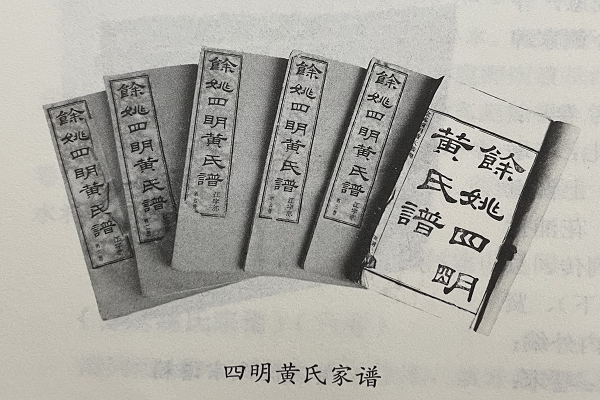 餘姚四明黄氏譜
餘姚四明黄氏譜
餘姚四明黄氏譜
餘姚四明黄氏譜
餘姚四明黄氏譜
餘姚四明
黄氏譜
四明黄氏家谱